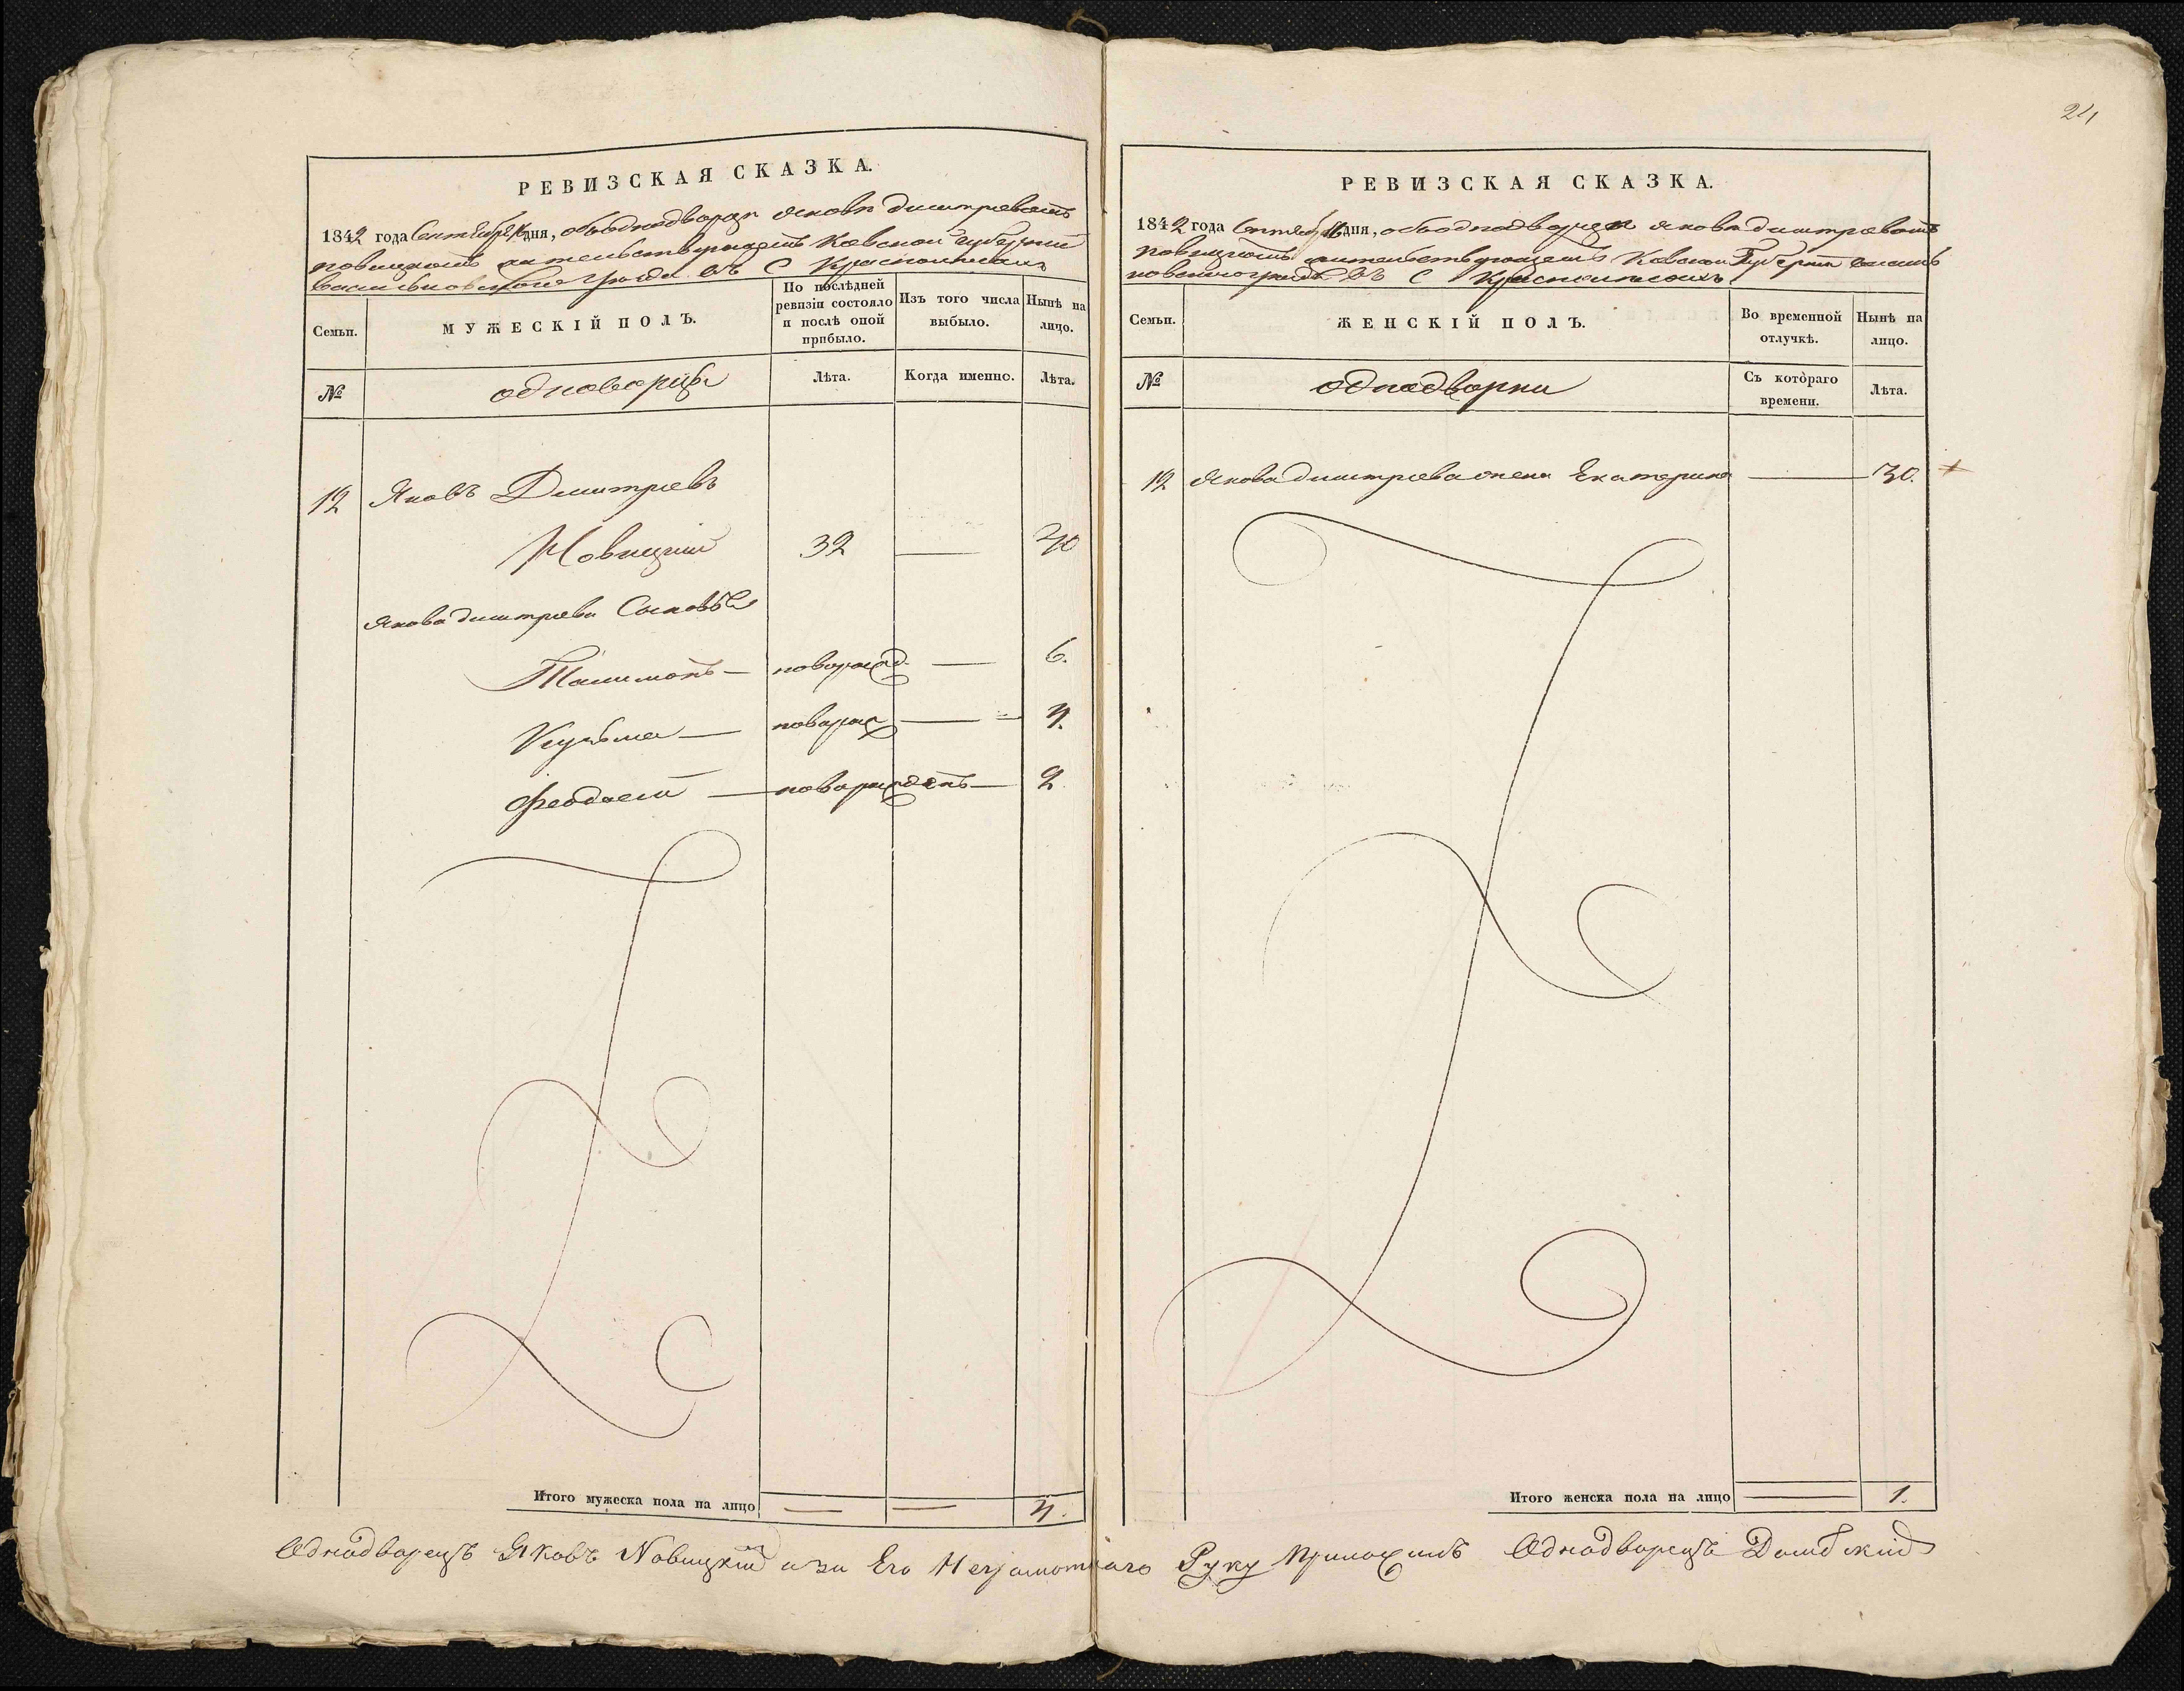 24
РЕВИЗСКАЯ СКАЗКА.
1842 года Сентебря 16 дня, обооднодворце Якове Димтревомъ
Новицкомъ жительствующемъ Киевской губернии
васильковского уезда въ С
МУЖЕСКІЙ ПОЛЪ.
Семьи.
По послѣдней ревизіи состояло и послѣ оной прибыло.
Изъ того числа выбыло.
Нынѣ на лицо.
№
одноворцы
Лѣта.
Когда именно.
Лѣта.
12 Яковъ Димтриевъ
Новицкий 32 — 40
Якова димтриева Сыновья
Филимонъ — новорожд. — 6.
Кузьма — новорож — 4.
Феодосий — новорожденъ — 2
Итого мужеска пола на лицо — — 4.
РЕВИЗСКАЯ СКАЗКА.
1842 года 16 дня, обооднодворце Якове димтревомъ
Новицкомъ жительствующемъ Киевской Губернии
уезда въ С
Семьи.
ЖЕНСКІЙ ПОЛЪ.
Во временной отлучкѣ.
Нынѣ на лицо.
№
однодворки
Съ котораго времени.
Лѣта.
12 Якова димтриева жена Екатерина — 30.
Итого женска пола на лицо — 1.
Однодворецъ Яковъ Новицкий а за Его Неграмотного Руку Приложилъ Однодворецъ